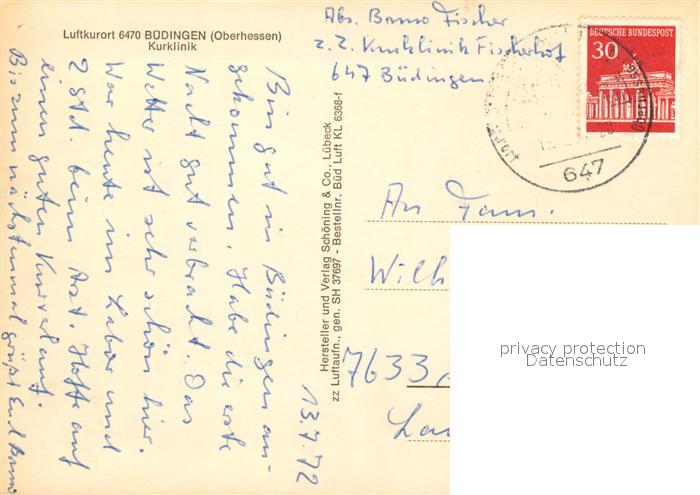 Luftkurort 6470 BÜDINGEN (Oberhessen)
Kurklinik
Abs. Bruno Fischer
z. Z. Kurklinik Fischerhof
647 Büdingen
DEUTSCHE BUNDESPOST
30
647
An Fam.
Wilh
7633,
La
privacy protection
Datenschutz
Hersteller und Verlag Schöning & Co., Lübeck
zz Luftaufn., gen. SH 37697 - Bestellnr. Büd Luft KL 6368-f
13.7.72
Bin gut in Büdingen an-
gekommen. Habe die erste
Nacht gut verbracht. Das
Wetter ist sehr schön hier.
War heute im Labor und
2 Std. beim Arzt. Hoffe auf
einen guten Kurverlauf.
Bis zum nächstenmal grüßt Bruno